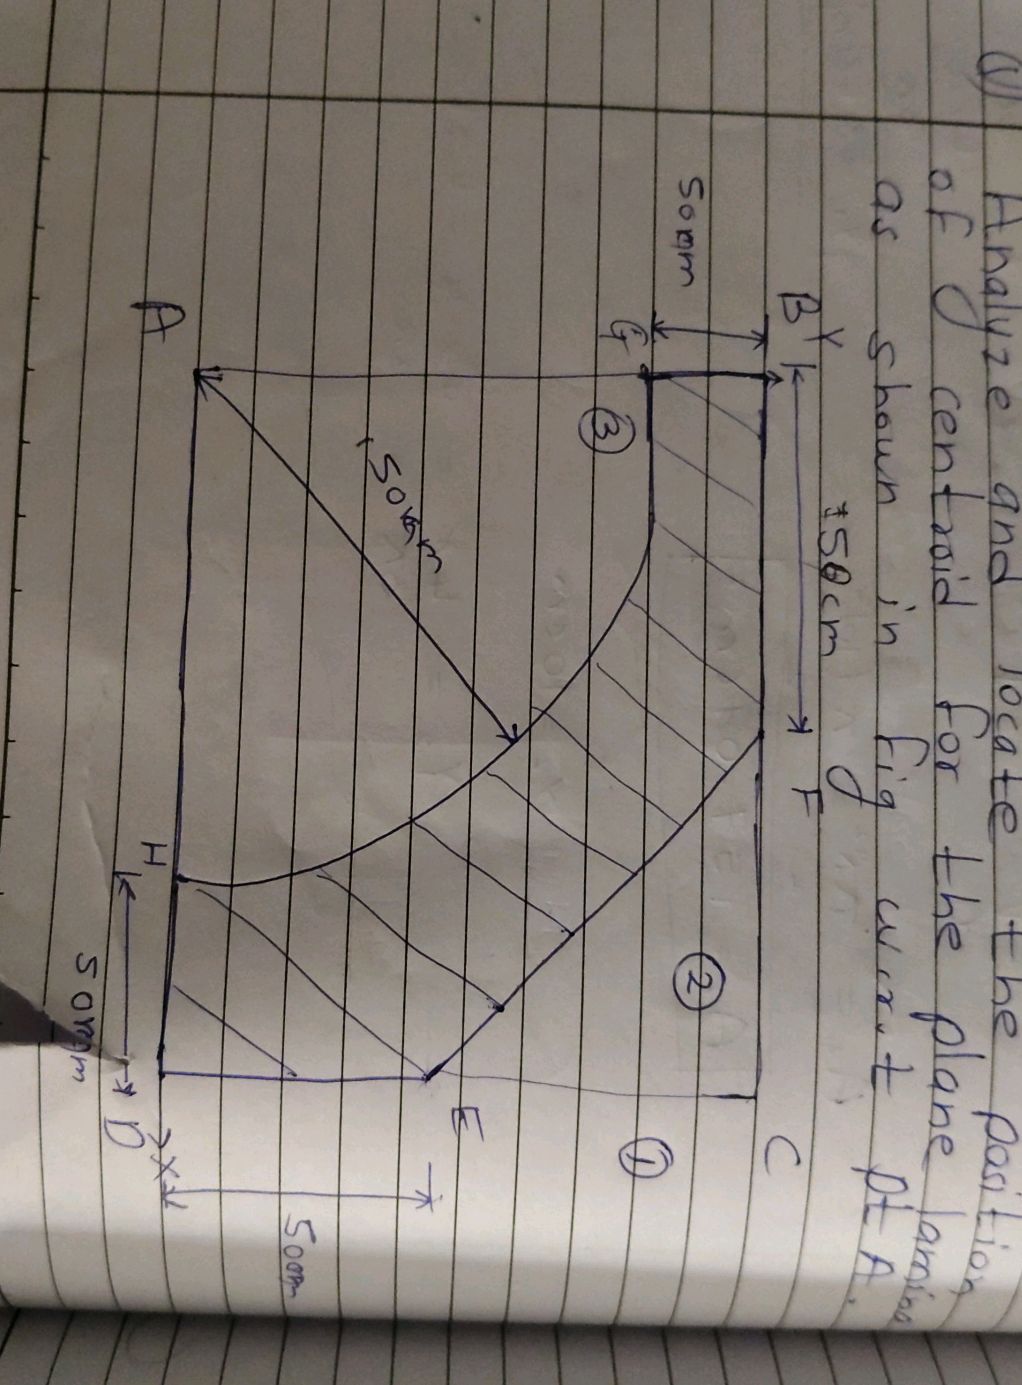 (1) Analyze and locate the position
of centroid for the plane lamina
as shown in fig w.r.t pt A.
B Y
F
C
50mm
G
③
②
①
50mm
E
50mm
A
H
50mm
D
X